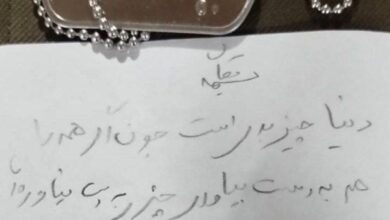 دنیا چیز بدی است چون اگر همه را
هم به دست بیاوری چیزی به دس نیاورده‌ای